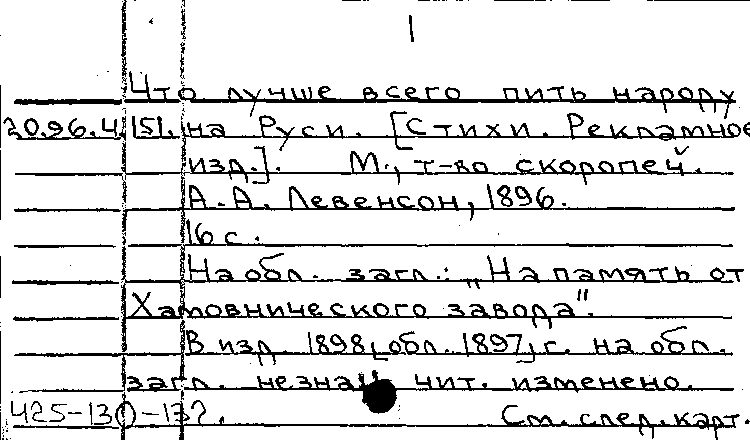 1
Что лучше всего пить народу
20.96.4.151. на Руси. [Стихи. Рекламное
изд.]. М., т-во скоропеч.
А.А. Левенсон, 1896.
16 с.
На обл. загл.: „На память от
Хамовнического завода".
В изд. 1898 [обл. 1897] г. на обл.
загл. незнач чит. изменено.
425-130-137. См. след. карт.